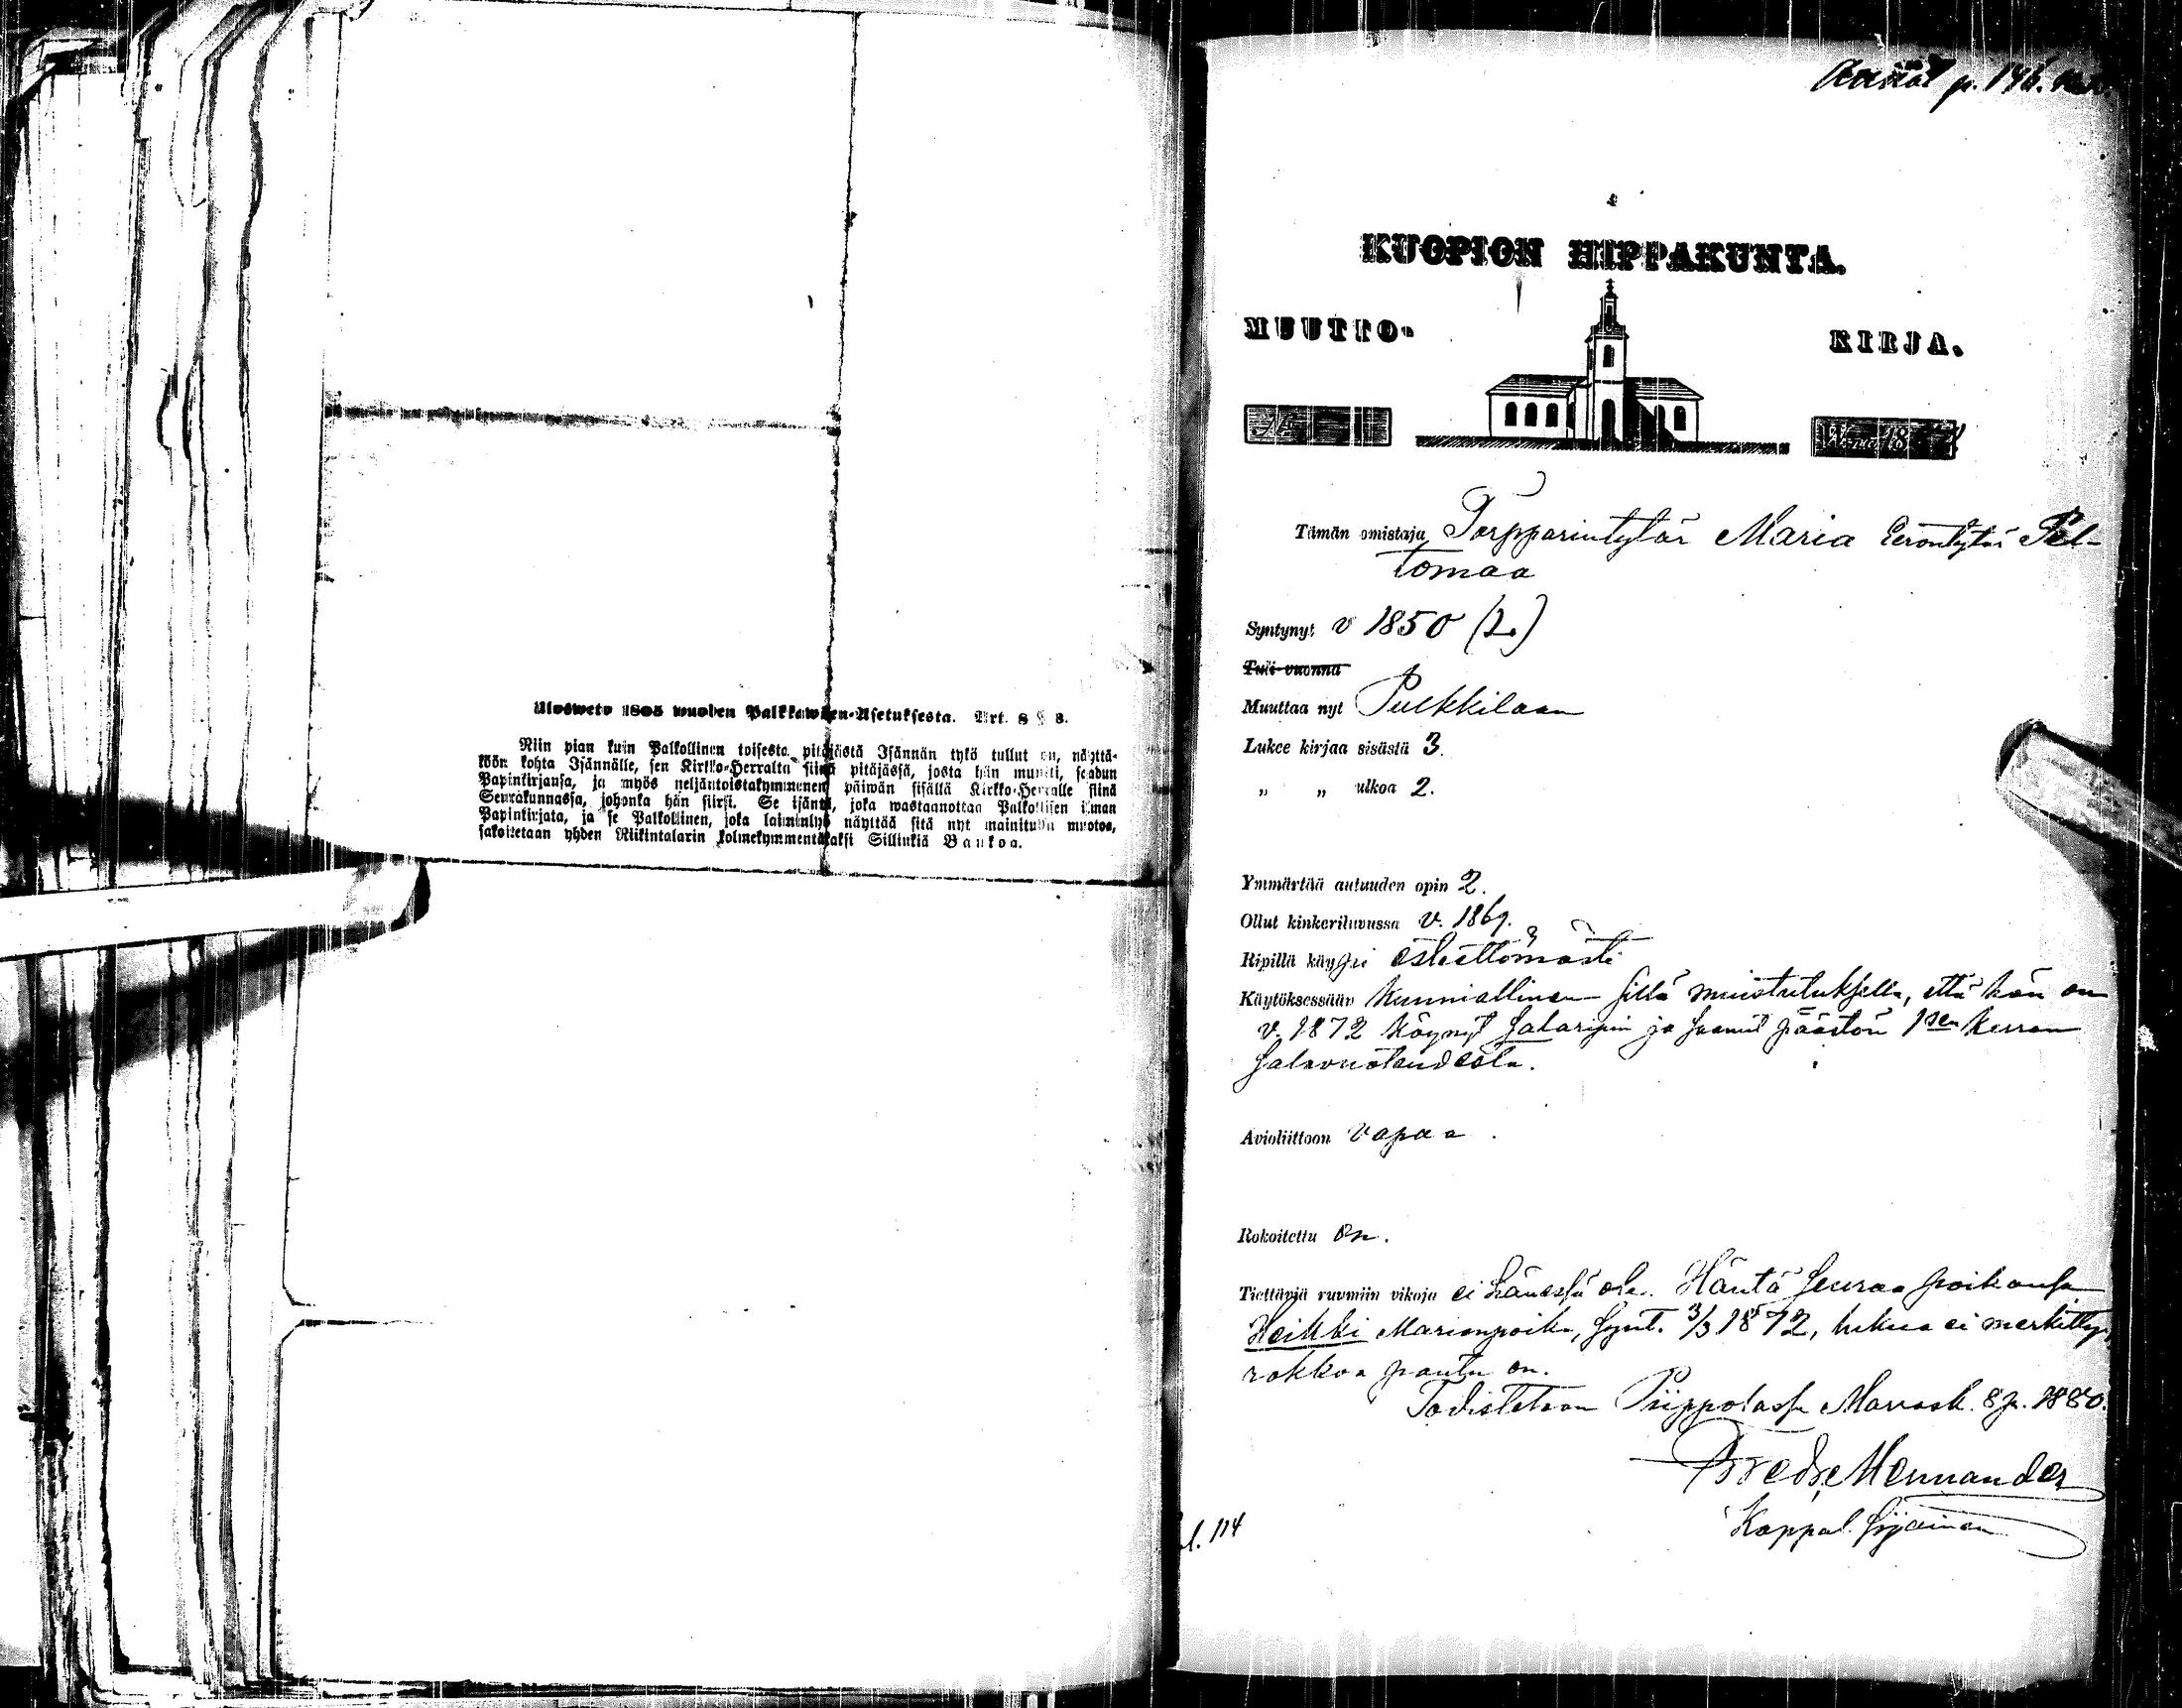 Ulosweto 1805 wuoden Palkkawäen-Asetuksesta. Art. 8 § 8.
Niin pian kuin Palkollinen toisesta pitäjästä Isännän tykö tullut on, näyttä-
köön kohta Isännälle, sen Kirkko-Herralta siinä pitäjässä, josta hän muutti, saadun
Papinkirjansa, ja myös neljäntoistakymmenen päiwän sisällä Kirkko-Herralle siinä
Seurakunnassa, johonka hän siirsi. Se isäntä, joka wastaanottaa Palkollisen ilman
Papinkirjata, ja se Palkollinen, joka laiminlyö näyttää sitä nyt mainitulla muotoa,
sakoitetaan yhden Riikintalarin kolmekymmentäkaksi Sillinkiä Bankoa.
p. 146.
KUOPION HIPPAKUNTA.
MUUTTO- KIRJA.
No Wuonna 18
Tämän omistaja Torpparintytär Maria Eerontytär Pel-
tomaa
Syntynyt v 1850 (L.)
Tuli vuonna
Muuttaa nyt Pulkkilaan
Lukee kirjaa sisästä 3.
„ „ ulkoa 2.
Ymmärtää autuuden opin 2.
Ollut kinkeriluvussa v. 1869.
Ripillä käypi esteettömästi
Käytöksessään kunniallinen sillä muistutuksella, että hän on
v. 1872 käynyt salaripin ja saanut päästön 1sen kerran
salavuoteudesta.
Avioliittoon vapaa.
Rokoitettu on.
Tiettäviä ruumiin vikoja ei hänessä ole. Häntä seuraa poikansa
Heikki Marianpoika, synt. 3/3 1872, lukua ei merkitty,
rokkoa pantu on.
Todistetaan Piippolassa Marrask. 8 p. 1880.
Fredr. Mennander
Kappal. sijainen
114